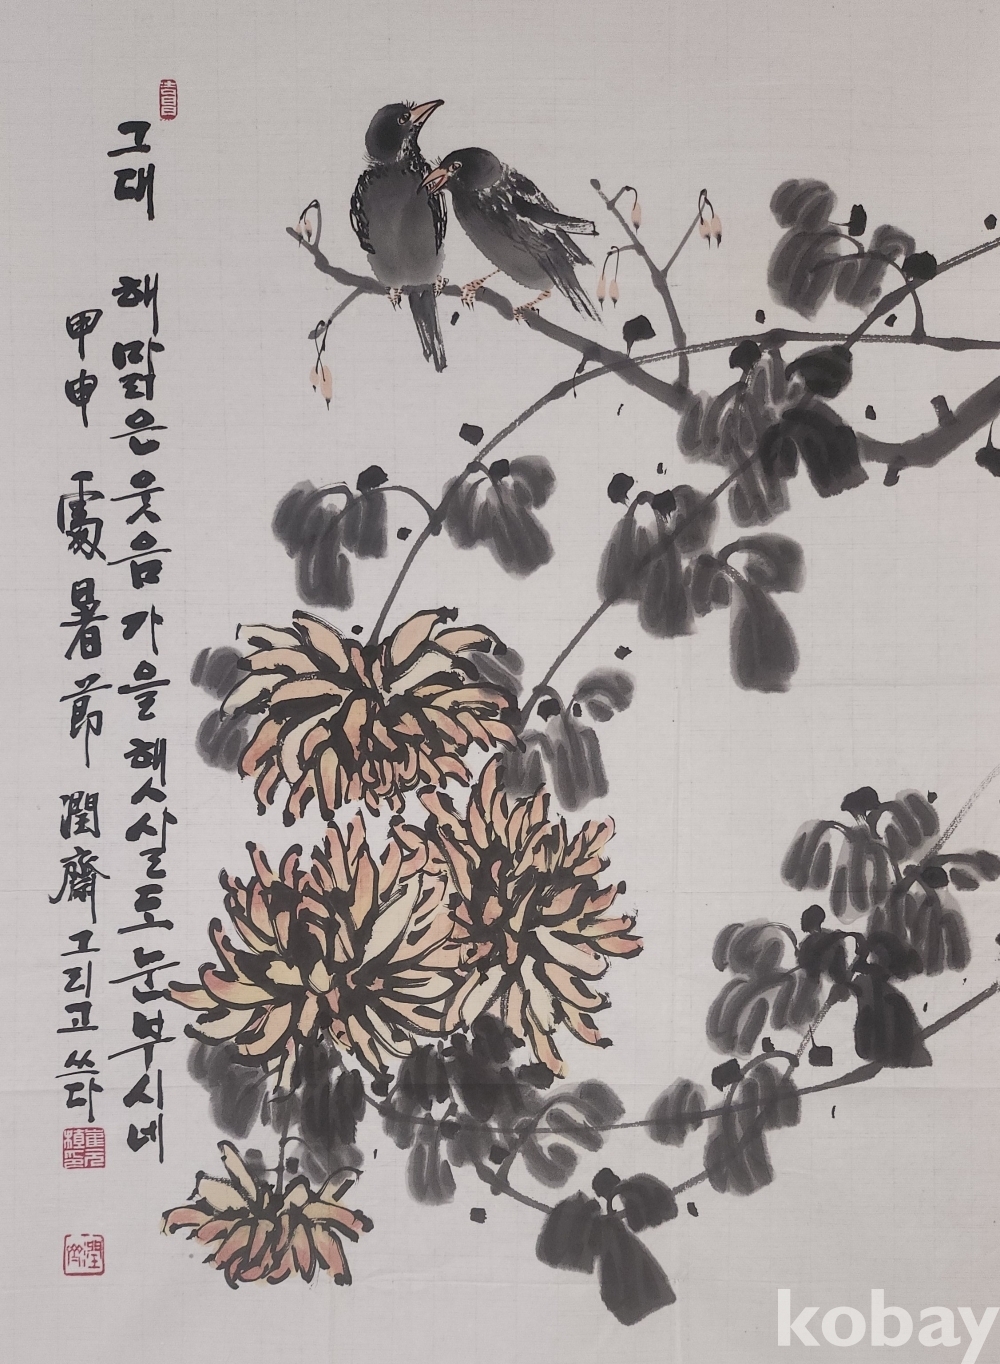 그대 해맑은 웃음 가을 햇살도 눈부시네
甲申 處暑節 潤齋 그리고 쓰다
kobay